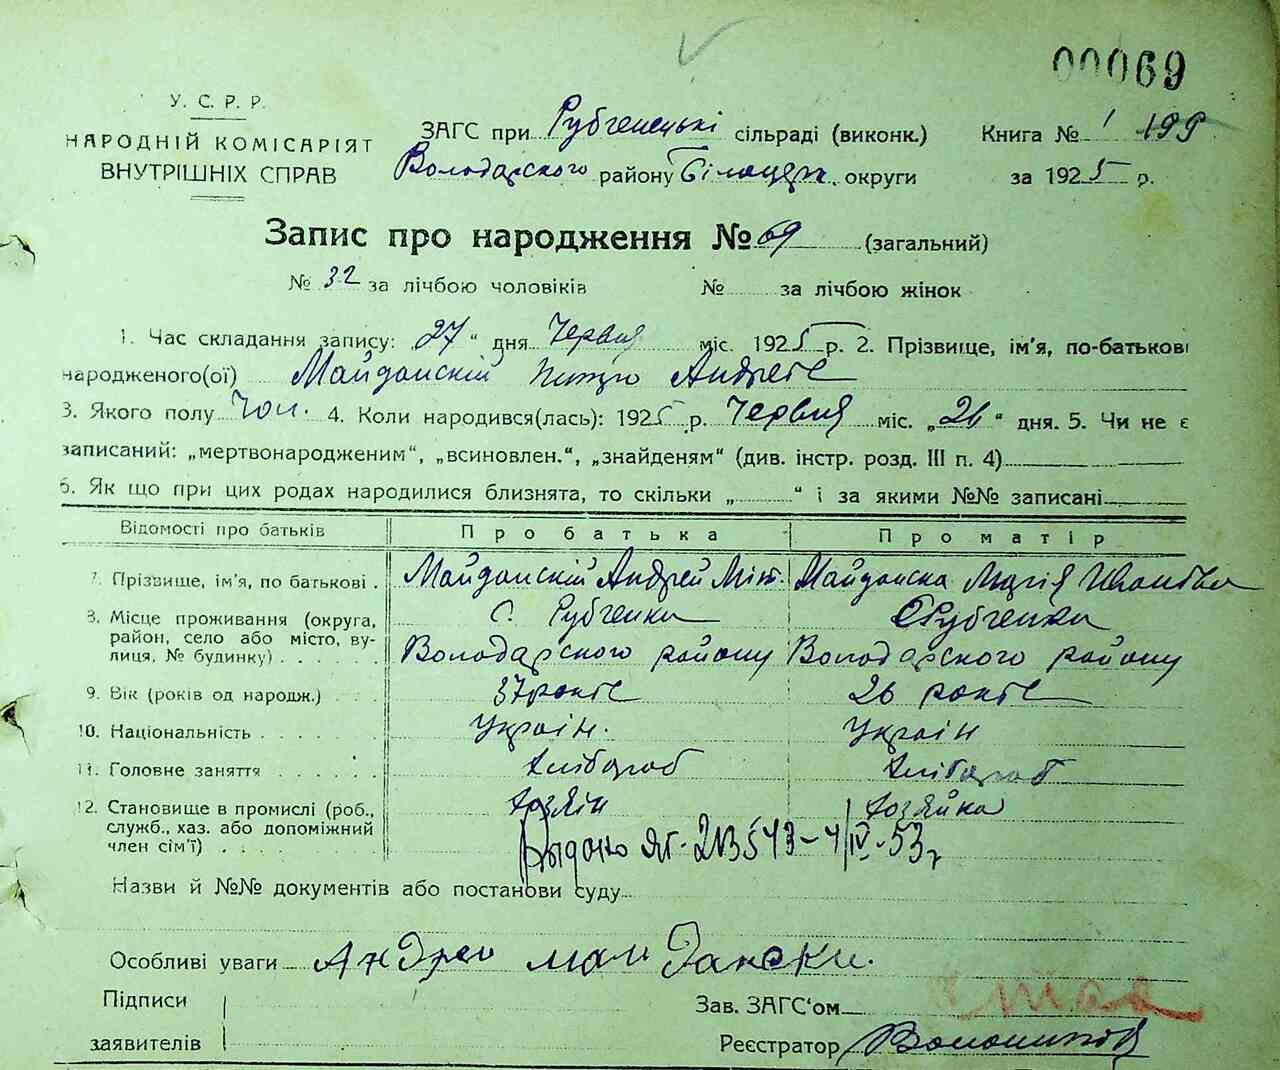 00069
У. С. Р. Р.
НАРОДНІЙ КОМІСАРІЯТ
ВНУТРІШНІХ СПРАВ
ЗАГС при Рубченецькі сільраді (виконк.) Книга № 1 199
Володарского району Білоцерк. округи за 1925 р.
Запис про народження № 69 (загальний)
№ 32 за лічбою чоловіків № за лічбою жінок
1. Час складання запису: „27“ дня Червня міс. 1925 р. 2. Прізвище, ім'я, по-батькові
народженого(ої) Майданскій Андреев
3. Якого полу Чол. 4. Коли народився(лась): 1925 р. Червня міс. „26“ дня. 5. Чи не є
записаний: „мертвонародженим“, „всиновлен.“, „знайденям“ (див. інстр. розд. III п. 4)
6. Як що при цих родах народилися близнята, то скільки „ “ і за якими №№ записані
Відомості про батьків Про батька Про матір
7. Прізвище, ім'я, по батькові . Майданскій Андрей Мик. Майданска Марія Ивановна
8. Місце проживання (округа, район, село або місто, вулиця, № будинку) . . . . . С. Рубченки С. Рубченки
Володарского району Володарского району
9. Вік (років од народж.) . . . 37 років 26 років
10. Національність . . . . . . Україн. Україн
11. Головне заняття . . . . . . хлібороб хлібороб
12. Становище в промислі (роб., служб., хаз. або допоміжний член сім'ї) . . . . хозяін хозяйка
Выдано ЯГ-213543-4/IV-53г
Назви й №№ документів або постанови суду
Особливі уваги Андрей май Дански.
Підписи
заявителів
Зав. ЗАГС'ом
Реєстратор